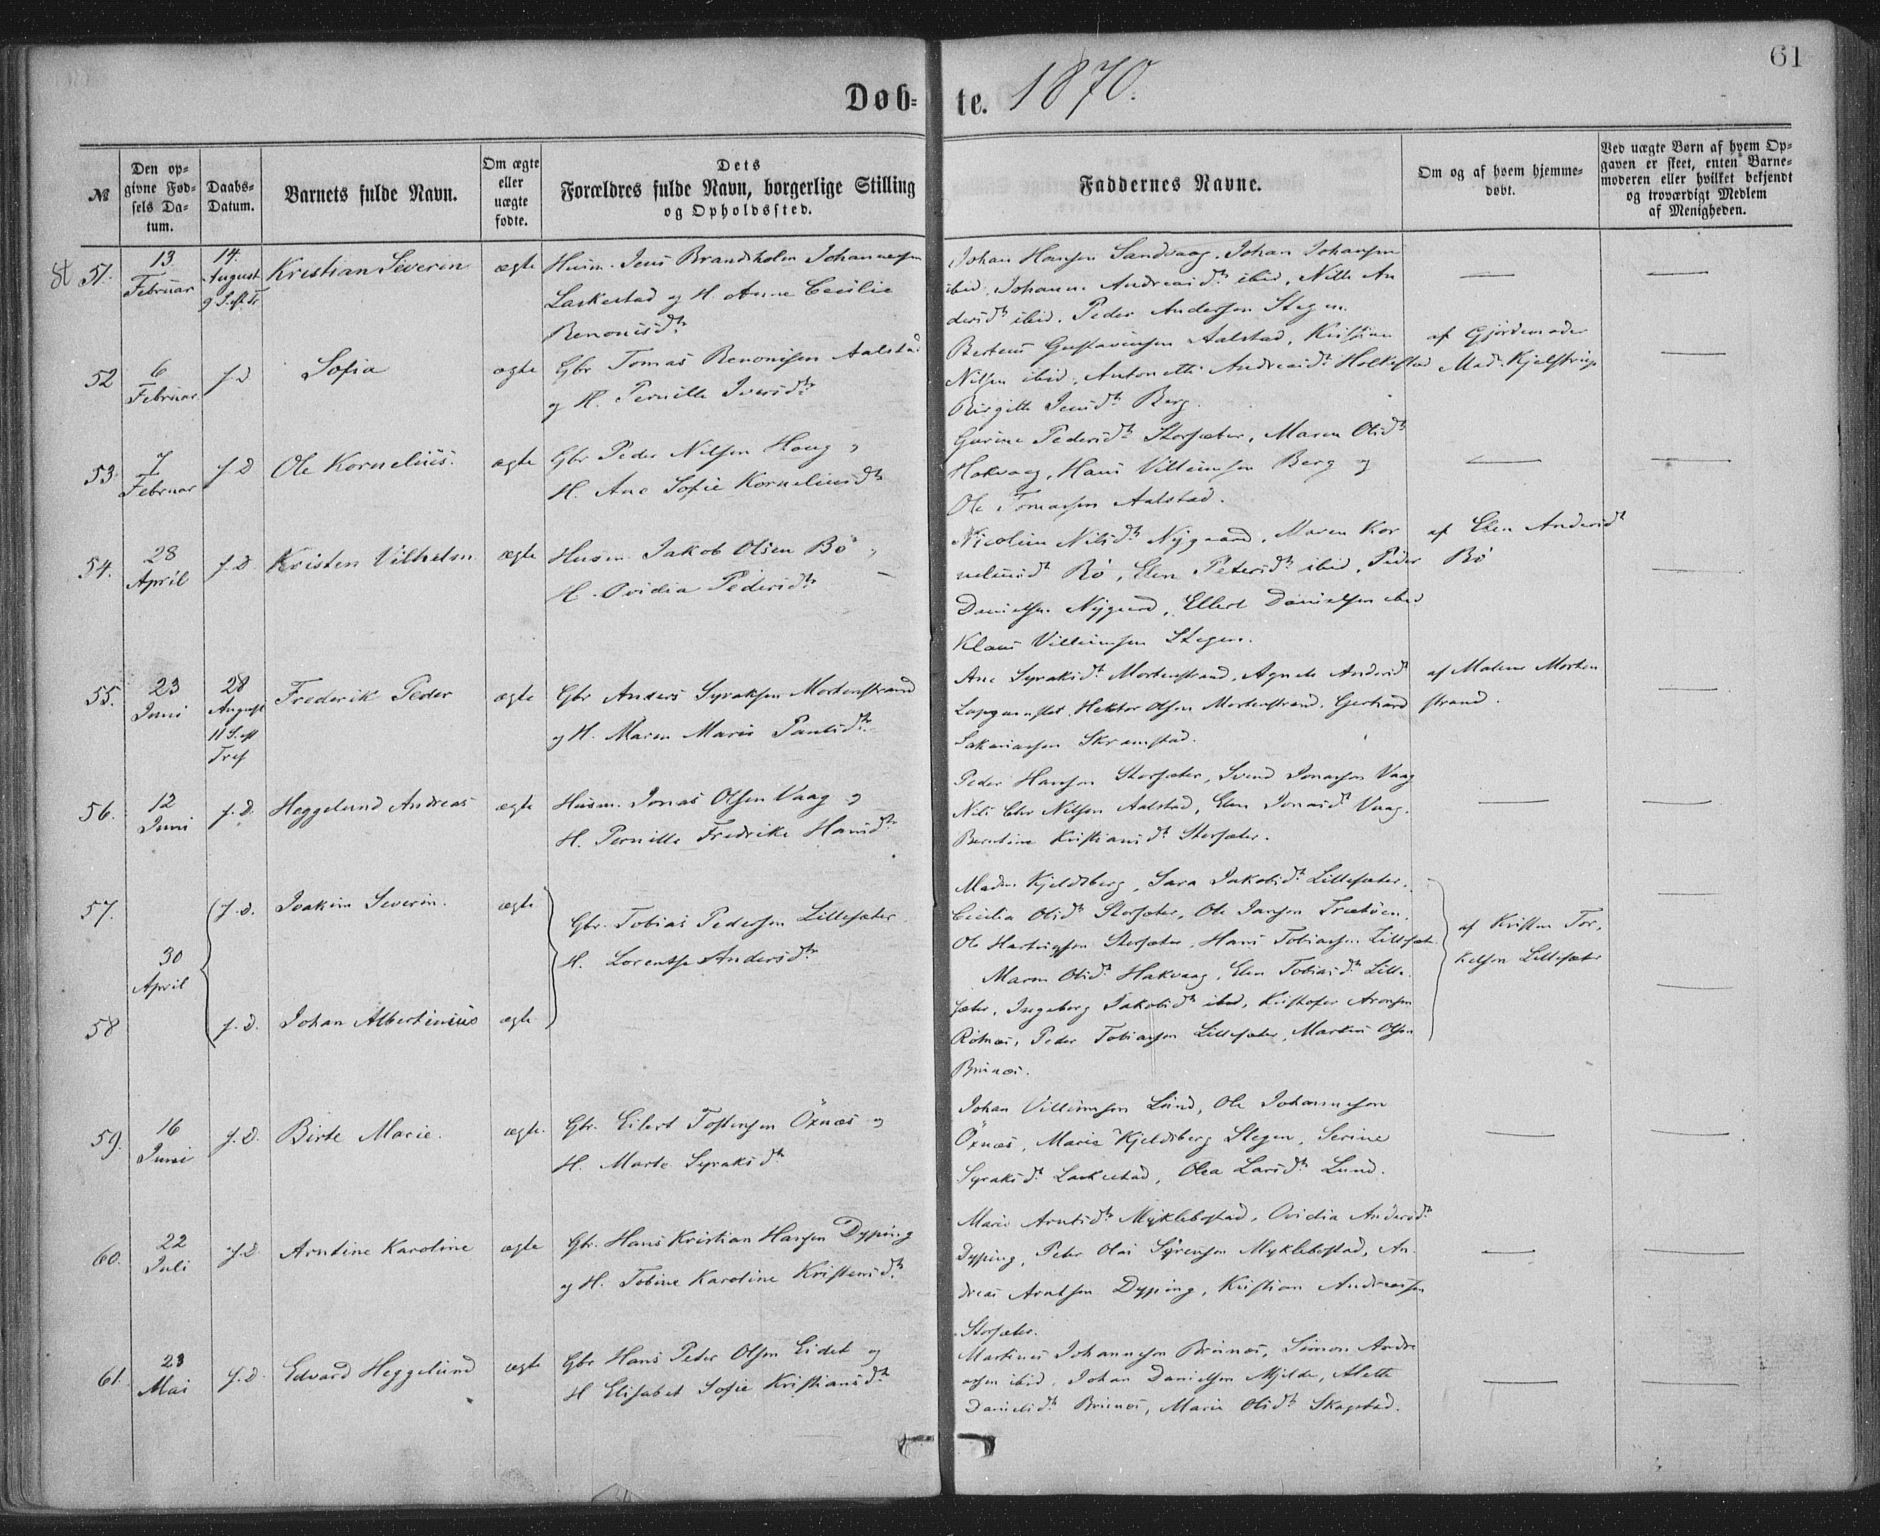 61
Døb- te. 1870.
№
Den op-
givne Fød-
sels Da-
tum.
Daabs-
Datum.
Barnets fulde Navn.
Om ægte
eller
uægte
fødte.
Dets
Forældres fulde Navn, borgerlige Stilling
og Opholdssted.
Faddernes Navne.
Om og af hvem hjemme-
døbt.
Ved uægte Børn af hvem Op-
gaven er skeet, enten Barne-
moderen eller hvilket bekjendt
og troværdigt Medlem
af Menigheden.
St 51.
13
Februar
14.
August
9 S. eft. Tr
Kristian Severin
ægte
Husm. Jens Brandsholm Johannessen
Laskestad og H. Anne Cecilie
Benonisdtr
Johan Hansen Sandvaag, Johan Johansen
ibid, Johanne Andreasdtr ibid, Nille An
dersdtr ibid, Peder Andersen Stegen.
52
6
Februar
s. D
Sofia
ægte
Gbr Tomas Benonisen Aalstad
og H. Pernille Iversdtr
Berteus Gustavsen Aalstad, Kristine
Nilsen ibid, Antonette Andreasdtr Holkestad
Birgitte Jensdtr Berg.
af Gjordemoder
Mad. Kjelstrup
53.
7
Februar
s. D
Ole Kornelius.
ægte
Gbr Peder Nilsen Haug og
H. Ane Sofie Korneliusdtr
Gurine Pedersdtr Storsæter, Maren Olsdtr
Hakvaag, Hans Villumsen Berg og
Ole Tomassen Aalstad.
54.
28
April
s. D.
Kristen Vilhelm
ægte
Husm. Jakob Olsen Bö og
H. Ovidia Pedersdtr
Nicoline Nilsdtr Nygaard, Maren Kor
neliusdtr Bö, Elen Petersdtr ibid, Peder
Danielsen Nygaard, Ellert Danielsen ibid
Klaus Villumsen Stegen.
af Elen Andersdtr
Bö
55.
23
Juni
28
August
11 S. eft
Tref
Frederik Peder
ægte
Gbr Anders Syraksen Mortenstrand
og H. Maren Marie Paulsdtr
Ane Syraksdtr Mortenstrand, Agnete Andersdtr
Hektor Olsen Mortenstrand, Gerhard
Sakariasen Skramstad.
af Malene Morten
strand.
56.
12
Juni
s. D.
Heggelund Andreas
ægte
Husm. Jonas Olsen Vaag og
H. Pernille Fredrikke Hansdtr
Peder Hansen Storsæter, Svend Jonassen Vaag
Nils Chr Nilsen Aalstad, Elen Jonasdtr Vaag.
Berntine Kristiansdtr Storsæter.
57.
s. D.
Joakim Severin.
ægte
30
April
Gbr. Tobias Pedersen Lillesæter
H. Lorentse Andersdtr
58
s. D.
Johan Albertinius
ægte
Madm. Kjeldsberg, Sara Jakobsdtr Lillesæter,
Cecilia Olsdtr Storsæter, Ole Jansen Trætöen.
Ole Hartvigsen Storsæter, Hans Tobiassen Lillesæt
Maren Olsdtr Hakvaag, Elen Tobiasdtr Lille
sæter, Ingeborg Jakobsdtr ibid, Kristofer Aronsen
Rotnæs, Peder Tobiassen Lillesæter, Markus Olsen
Brunæs.
af Kristen Tor,
kelsen Lillesæter
59.
16
Juni
s. D.
Birte Marie.
ægte.
Gbr. Eilert Tostensen Öxnæs og
H. Marte Syraksdtr
Johan Villumsen Lund, Ole Johannesen
Öxnæs, Marie Kjeldsberg Stegen, Serine
Syraksdtr Laskestad, Olea Larsdtr Lund.
60.
22
Juli
s. D
Arntine Karoline
ægte
Gbr. Hans Kristian Hansen Dyping
og H. Tobine Karoline Kristensdtr
Marie Arntsdtr Myklebostad, Ovidia Andersdtr
Dyping, Peter Olai Sörensen Myklebostad, An-
dreas Arntsen Dyping, Kristian Andreassen
Storsæter.
61.
23
Mai
s. D
Edvard Heggelund
ægte
Gbr Hans Peter Olsen Eidet og
H Elisabet Sofie Kristiansdtr
Martinus Johannesen Brunæs, Simon Andre
asen ibid, Johan Danielsen Mjelde, Alette
Danielsdtr Brunæs, Marie Olsdtr Skagstad.